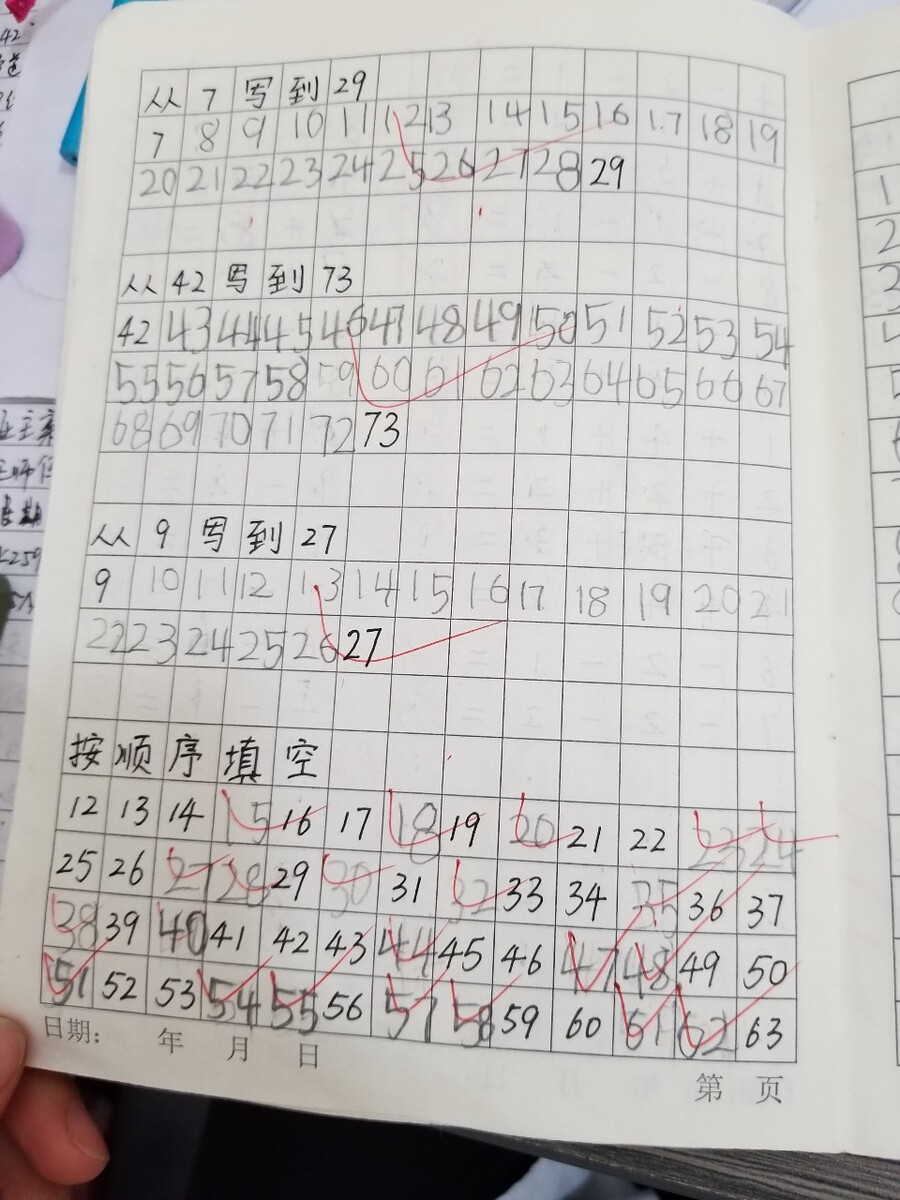 从 7 写 到 29
7 8 9 10 11 12 13 14 15 16 17 18 19
20 21 22 23 24 25 26 27 28 29
从 42 写 到 73
42 43 44 45 46 47 48 49 50 51 52 53 54
55 56 57 58 59 60 61 62 63 64 65 66 67
68 69 70 71 72 73
从 9 写 到 27
9 10 11 12 13 14 15 16 17 18 19 20 21
22 23 24 25 26 27
按 顺 序 填 空
12 13 14 15 16 17 18 19 20 21 22 23 24
25 26 27 28 29 30 31 32 33 34 35 36 37
38 39 40 41 42 43 44 45 46 47 48 49 50
51 52 53 54 55 56 57 58 59 60 61 62 63
日期: 年 月 日
第 页